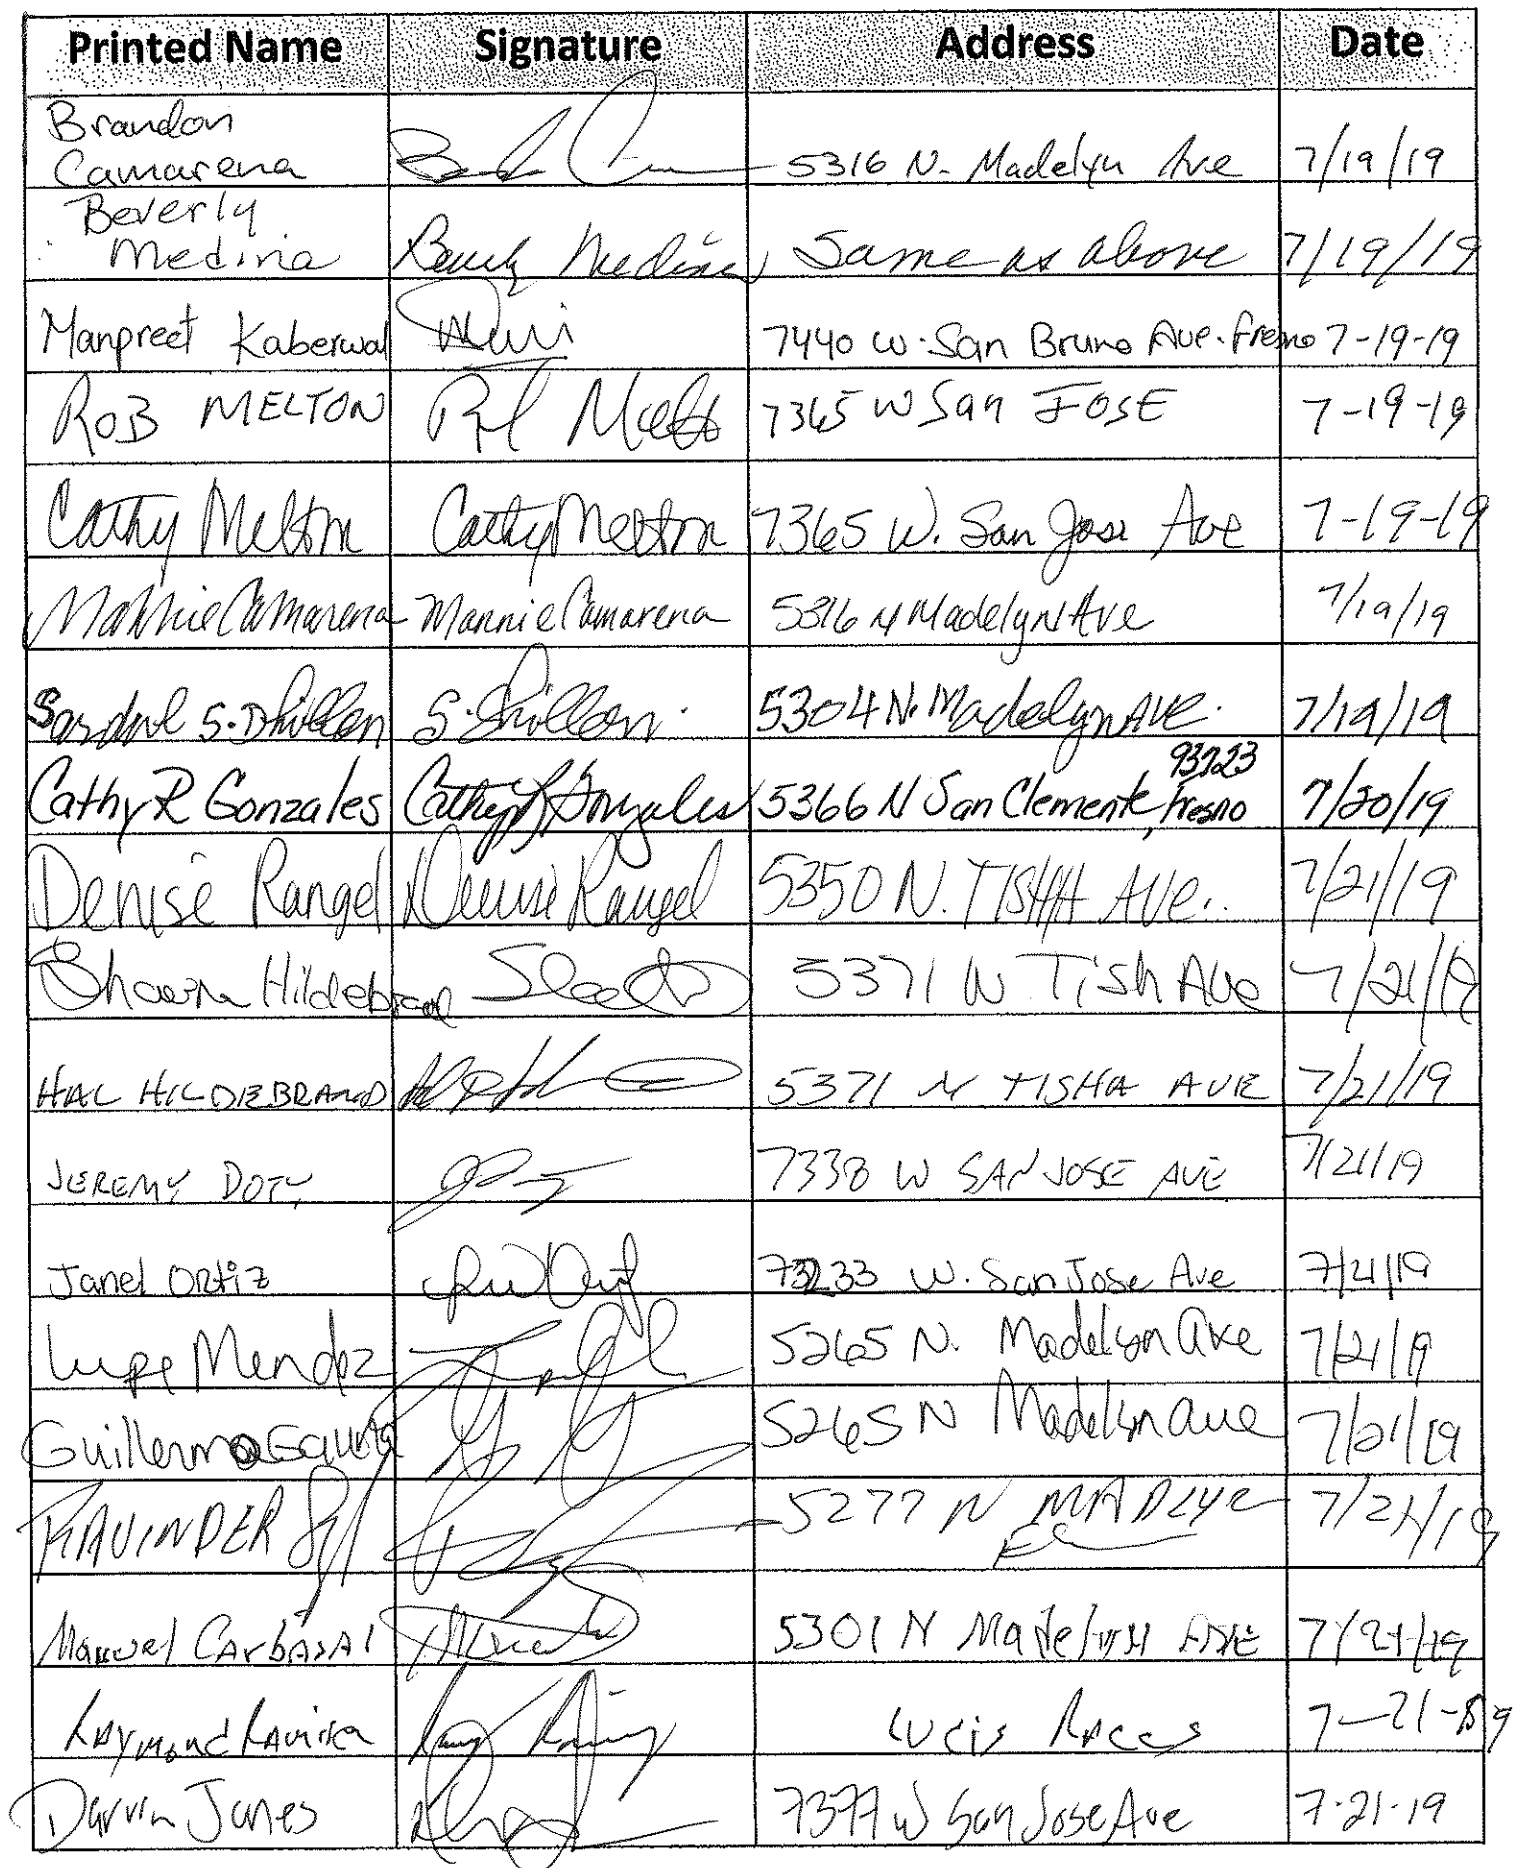 Printed Name Signature Address Date
Brandon
Camarena 5316 N. Madelyn Ave 7/19/19
Beverly
Medina Beverly Medina Same as above 7/19/19
Manpreet Kaberwal 7440 W. San Bruno Ave. Fresno 7-19-19
ROB MELTON 7365 W San JOSE 7-19-19
Cathy Melton Cathy Melton 7365 W. San Jose Ave 7-19-19
Mannie Camarena Mannie Camarena 5316 N Madelyn Ave 7/19/19
S. Dhillon S. Dhillon 5304 N. Madelyn AVE. 7/19/19
93723
Cathy R Gonzales Cathy R Gonzales 5366 N San Clemente, Fresno 7/20/19
Denise Rangel Denise Rangel 5350 N. TISHA AVE. 7/21/19
Shawna Hildebrand 5371 N Tish Ave 7/21/19
HAL HILDEBRAND 5371 N TISHA AVE 7/21/19
JEREMY DOTY 7338 W SAN JOSE AVE 7/21/19
Janel Ortiz W. San Jose Ave 7/21/19
Lupe Mendoz 5265 N. Madelyn Ave 7/21/19
Guillermo Gaurta 5265 N Madelyn Ave 7/21/19
RAVINDER 5277 N 7/21/19
Manuel Carbajal 5301 N Madelyn AVE 7/21/19
Raymond 7-21-19
Darvin Jones 7377 W San Jose Ave 7-21-19